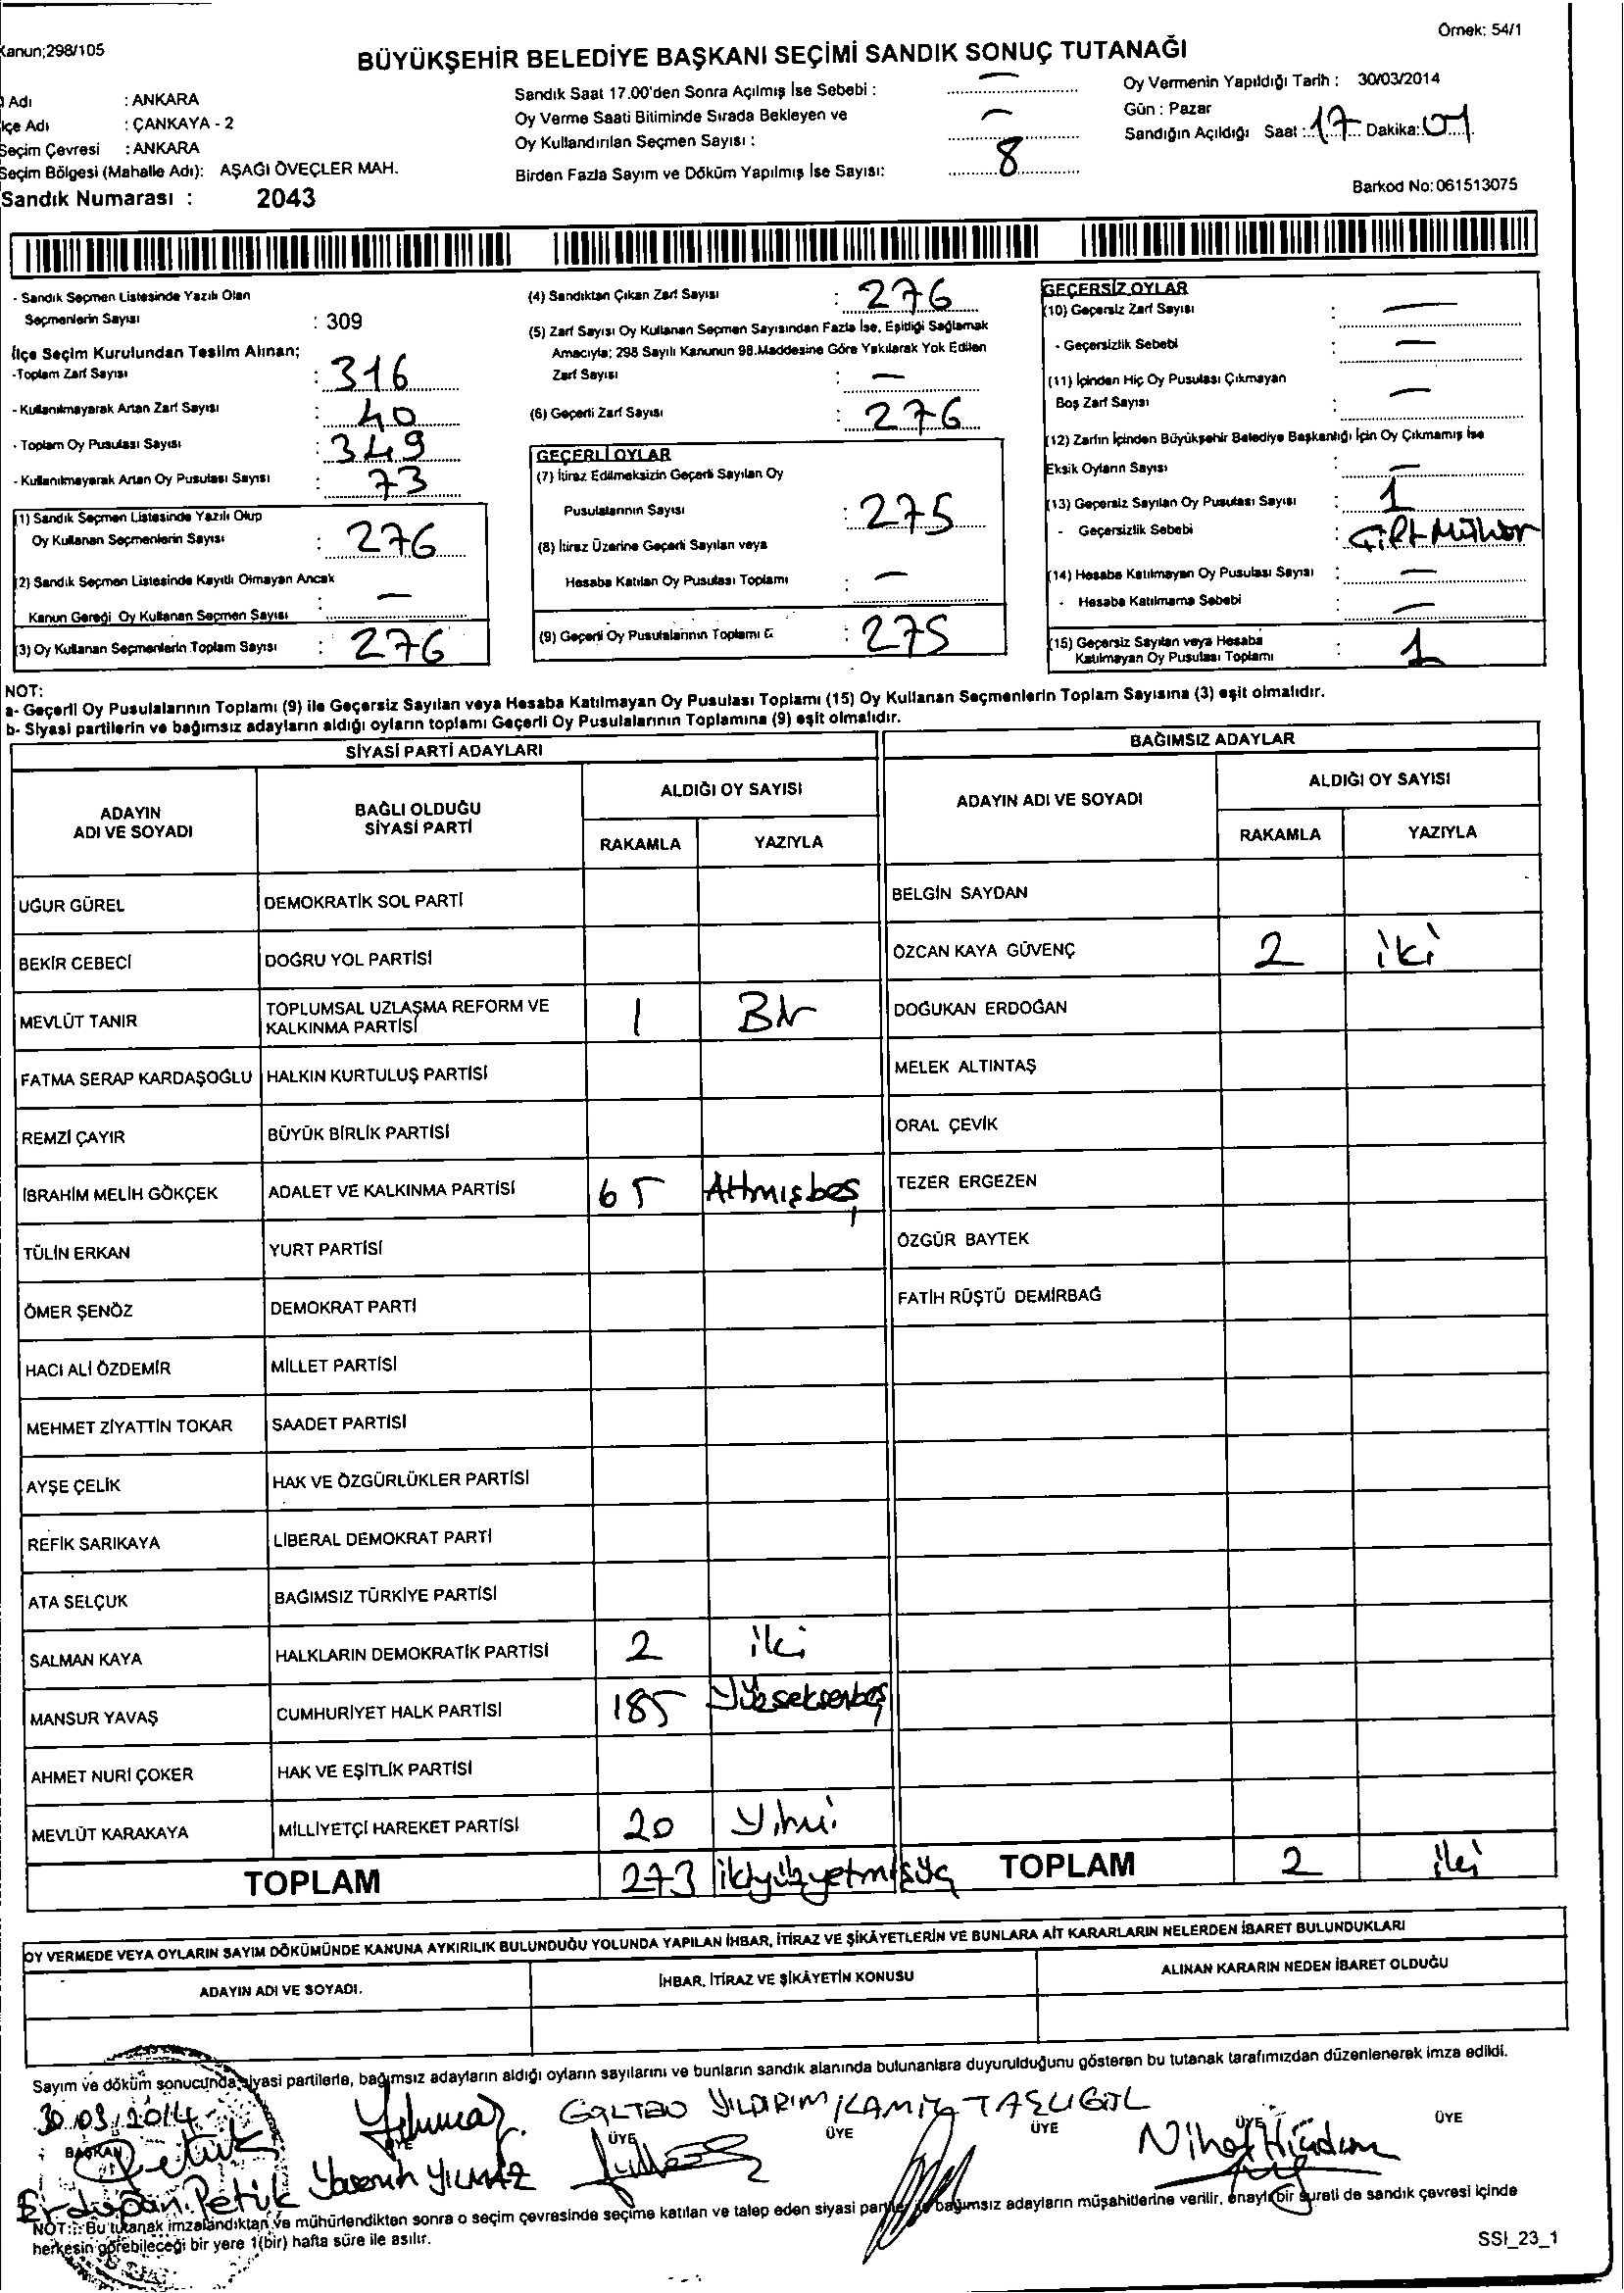 Örnek: 54/1
Kanun;298/105
BÜYÜKŞEHİR BELEDİYE BAŞKANI SEÇİMİ SANDIK SONUÇ TUTANAĞI
Adı : ANKARA
İlçe Adı : ÇANKAYA - 2
Seçim Çevresi : ANKARA
Seçim Bölgesi (Mahalle Adı): AŞAĞI ÖVEÇLER MAH.
Sandık Numarası : 2043
Sandık Saat 17.00'den Sonra Açılmış İse Sebebi : —
Oy Verme Saati Bitiminde Sırada Bekleyen ve
Oy Kullandırılan Seçmen Sayısı : —
Birden Fazla Sayım ve Döküm Yapılmış İse Sayısı: 8
Oy Vermenin Yapıldığı Tarih : 30/03/2014
Gün : Pazar
Sandığın Açıldığı Saat : 17 Dakika: 01
Barkod No: 061513075
- Sandık Seçmen Listesinde Yazılı Olan
Seçmenlerin Sayısı : 309
İlçe Seçim Kurulundan Teslim Alınan;
-Toplam Zarf Sayısı : 316
- Kullanılmayarak Artan Zarf Sayısı : 40
- Toplam Oy Pusulası Sayısı : 349
- Kullanılmayarak Artan Oy Pusulası Sayısı : 73
(1) Sandık Seçmen Listesinde Yazılı Olup
Oy Kullanan Seçmenlerin Sayısı : 276
(2) Sandık Seçmen Listesinde Kayıtlı Olmayan Ancak
Kanun Gereği Oy Kullanan Seçmen Sayısı : —
(3) Oy Kullanan Seçmenlerin Toplam Sayısı : 276
(4) Sandıktan Çıkan Zarf Sayısı : 276
(5) Zarf Sayısı Oy Kullanan Seçmen Sayısından Fazla İse, Eşitliği Sağlamak
Amacıyla; 298 Sayılı Kanunun 98.Maddesine Göre Yakılarak Yok Edilen
Zarf Sayısı : —
(6) Geçerli Zarf Sayısı : 276
GEÇERLİ OYLAR
(7) İtiraz Edilmeksizin Geçerli Sayılan Oy
Pusulalarının Sayısı : 275
(8) İtiraz Üzerine Geçerli Sayılan veya
Hesaba Katılan Oy Pusulası Toplamı : —
(9) Geçerli Oy Pusulalarının Toplamı : 275
GEÇERSİZ OYLAR
(10) Geçersiz Zarf Sayısı : —
- Geçersizlik Sebebi : —
(11) İçinden Hiç Oy Pusulası Çıkmayan
Boş Zarf Sayısı : —
(12) Zarfın İçinden Büyükşehir Belediye Başkanlığı İçin Oy Çıkmamış İse
Eksik Oyların Sayısı : —
(13) Geçersiz Sayılan Oy Pusulası Sayısı : 1
- Geçersizlik Sebebi : Çift Mühür
(14) Hesaba Katılmayan Oy Pusulası Sayısı : —
- Hesaba Katılmama Sebebi : —
(15) Geçersiz Sayılan veya Hesaba
Katılmayan Oy Pusulası Toplamı : 1
NOT:
a- Geçerli Oy Pusulalarının Toplamı (9) ile Geçersiz Sayılan veya Hesaba Katılmayan Oy Pusulası Toplamı (15) Oy Kullanan Seçmenlerin Toplam Sayısına (3) eşit olmalıdır.
b- Siyasi partilerin ve bağımsız adayların aldığı oyların toplamı Geçerli Oy Pusulalarının Toplamına (9) eşit olmalıdır.
SİYASİ PARTİ ADAYLARI
ADAYIN ADI VE SOYADI
BAĞLI OLDUĞU SİYASİ PARTİ
ALDIĞI OY SAYISI
RAKAMLA YAZIYLA
UĞUR GÜREL DEMOKRATİK SOL PARTİ
BEKİR CEBECİ DOĞRU YOL PARTİSİ
MEVLÜT TANIR TOPLUMSAL UZLAŞMA REFORM VE KALKINMA PARTİSİ 1 Bir
FATMA SERAP KARDAŞOĞLU HALKIN KURTULUŞ PARTİSİ
REMZİ ÇAYIR BÜYÜK BİRLİK PARTİSİ
İBRAHİM MELİH GÖKÇEK ADALET VE KALKINMA PARTİSİ 65 Altmışbeş
TÜLİN ERKAN YURT PARTİSİ
ÖMER ŞENÖZ DEMOKRAT PARTİ
HACI ALİ ÖZDEMİR MİLLET PARTİSİ
MEHMET ZİYATTİN TOKAR SAADET PARTİSİ
AYŞE ÇELİK HAK VE ÖZGÜRLÜKLER PARTİSİ
REFİK SARIKAYA LİBERAL DEMOKRAT PARTİ
ATA SELÇUK BAĞIMSIZ TÜRKİYE PARTİSİ
SALMAN KAYA HALKLARIN DEMOKRATİK PARTİSİ 2 iki
MANSUR YAVAŞ CUMHURİYET HALK PARTİSİ 185 Yüzseksenbeş
AHMET NURİ ÇOKER HAK VE EŞİTLİK PARTİSİ
MEVLÜT KARAKAYA MİLLİYETÇİ HAREKET PARTİSİ 20 Yirmi
TOPLAM 273 ikiyüzyetmişüç
BAĞIMSIZ ADAYLAR
ADAYIN ADI VE SOYADI
ALDIĞI OY SAYISI
RAKAMLA YAZIYLA
BELGİN SAYDAN
ÖZCAN KAYA GÜVENÇ 2 iki
DOĞUKAN ERDOĞAN
MELEK ALTINTAŞ
ORAL ÇEVİK
TEZER ERGEZEN
ÖZGÜR BAYTEK
FATİH RÜŞTÜ DEMİRBAĞ
TOPLAM 2 iki
OY VERMEDE VEYA OYLARIN SAYIM DÖKÜMÜNDE KANUNA AYKIRILIK BULUNDUĞU YOLUNDA YAPILAN İHBAR, İTİRAZ VE ŞİKÂYETLERİN VE BUNLARA AİT KARARLARIN NELERDEN İBARET BULUNDUKLARI
ADAYIN ADI VE SOYADI. İHBAR, İTİRAZ VE ŞİKÂYETİN KONUSU ALINAN KARARIN NEDEN İBARET OLDUĞU
Sayım ve döküm sonucunda siyasi partilerle, bağımsız adayların aldığı oyların sayılarını ve bunların sandık alanında bulunanlara duyurulduğunu gösteren bu tutanak tarafımızdan düzenlenerek imza edildi.
30.03.2014
Yılmaz GÜLTEN YILDIRIM KAMİL TAŞLIGÖL
BAŞKAN ÜYE ÜYE ÜYE ÜYE ÜYE ÜYE
Erdoğan Petük YILMAZ Nihat
NOT: Bu tutanak imzalandıktan ve mühürlendikten sonra o seçim çevresinde seçime katılan ve talep eden siyasi partiler ve bağımsız adayların müşahitlerine verilir, onaylı bir sureti de sandık çevresi içinde
herkesin görebileceği bir yere 1(bir) hafta süre ile asılır.
SSI_23_1